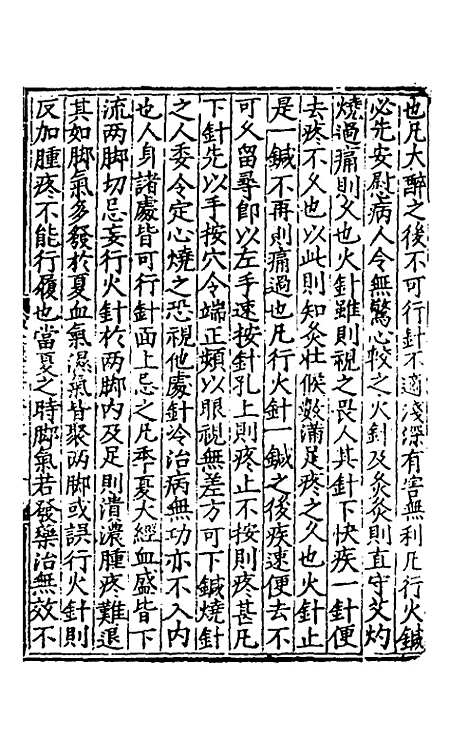 也凡大醉之後不可行針不適淺深有害無利凡行火鍼
必先安慰病人令無驚心較之火針及灸灸則直守艾灼
燒過痛則久也火針雖則視之畏人其針下快疾一針便
去疼不久也以此則知灸壯候数滿足疼之久也火針止
是一鍼不再則痛過也凡行火針一鍼之後疾速便去不
可久留尋即以左手速按針孔上則疼止不按則疼甚凡
下針先以手按穴令端正頻以眼視無差方可下鍼燒針
之人委令定心燒之恐視他處針冷治病無功亦不入内
也人身諸處皆可行針面上忌之凡季夏大經血盛皆下
流两脚切忌妄行火針於两脚内及足則潰濃腫疼難退
其如脚氣多發於夏血氣濕氣皆聚两脚或誤行火針則
反加腫疼不能行履也當夏之時脚氣若發藥治無效不